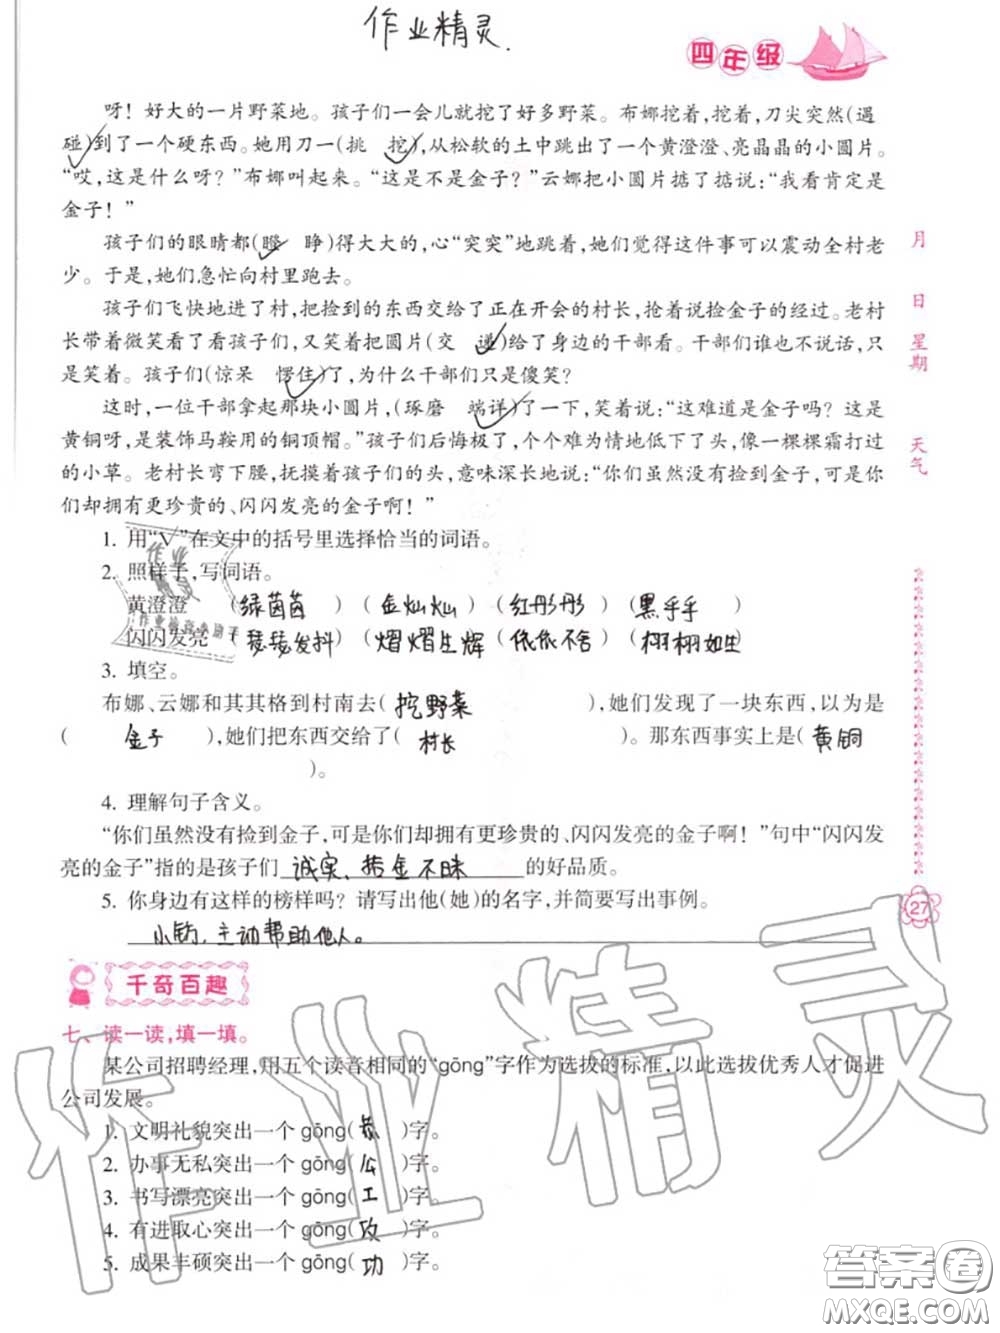 作业精灵.
四年级
呀！好大的一片野菜地。孩子们一会儿就挖了好多野菜。布娜挖着,挖着,刀尖突然(遇
碰)到了一个硬东西。她用刀一(挑 挖),从松软的土中跳出了一个黄澄澄、亮晶晶的小圆片。
“哎,这是什么呀？”布娜叫起来。“这是不是金子？”云娜把小圆片掂了掂说:“我看肯定是
金子！”
孩子们的眼睛都(瞪 睁)得大大的,心“突突”地跳着,她们觉得这件事可以震动全村老
少。于是,她们急忙向村里跑去。
孩子们飞快地进了村,把捡到的东西交给了正在开会的村长,抢着说捡金子的经过。老村
长带着微笑看了看孩子们,又笑着把圆片(交 递)给了身边的干部看。干部们谁也不说话,只
是笑着。孩子们(惊呆 愣住)了,为什么干部们只是傻笑？
这时,一位干部拿起那块小圆片,(琢磨 端详)了一下,笑着说:“这难道是金子吗？这是
黄铜呀,是装饰马鞍用的铜顶帽。”孩子们后悔极了,个个难为情地低下了头,像一棵棵霜打过
的小草。老村长弯下腰,抚摸着孩子们的头,意味深长地说:“你们虽然没有捡到金子,可是你
们却拥有更珍贵的、闪闪发亮的金子啊！”
1. 用“√”在文中的括号里选择恰当的词语。
2. 照样子,写词语。
黄澄澄 (绿茵茵) (金灿灿) (红彤彤) (黑乎乎)
闪闪发亮 (瑟瑟发抖) (熠熠生辉) (依依不舍) (栩栩如生)
3. 填空。
布娜、云娜和其其格到村南去( 挖野菜 ),她们发现了一块东西,以为是
( 金子 ),她们把东西交给了( 村长 )。那东西事实上是( 黄铜
)。
4. 理解句子含义。
“你们虽然没有捡到金子,可是你们却拥有更珍贵的、闪闪发亮的金子啊！”句中“闪闪发
亮的金子”指的是孩子们 诚实、拾金不昧 的好品质。
5. 你身边有这样的榜样吗？请写出他(她)的名字,并简要写出事例。
小钧,主动帮助他人。
千奇百趣
七、读一读,填一填。
某公司招聘经理,用五个读音相同的“gōng”字作为选拔的标准,以此选拔优秀人才促进
公司发展。
1. 文明礼貌突出一个 gōng( 恭 )字。
2. 办事无私突出一个 gōng( 公 )字。
3. 书写漂亮突出一个 gōng( 工 )字。
4. 有进取心突出一个 gōng( 攻 )字。
5. 成果丰硕突出一个 gōng( 功 )字。
月
日
星期
天气
27
作业精灵
答案圈
MXQE.COM